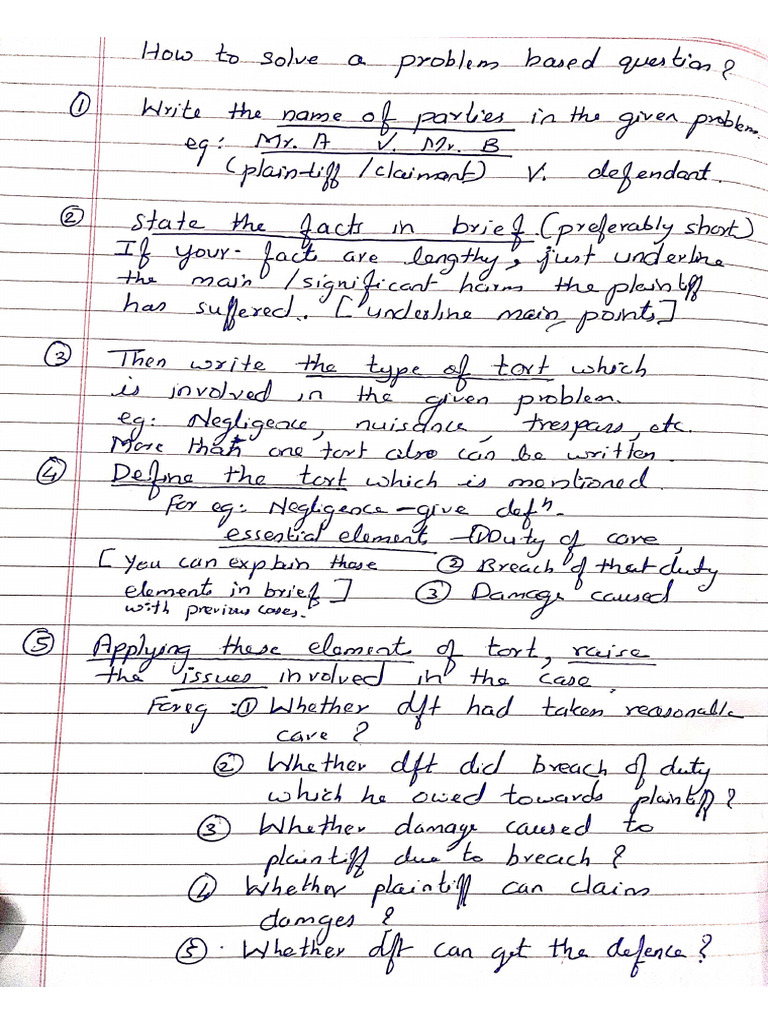 How to solve a problem based question?
① Write the name of parties in the given problem.
eg: Mr. A V. Mr. B
(plaintiff/claimant) V. defendant.
② State the facts in brief (preferably short)
If your fact are lengthy, just underline
the main/significant harm the plaintiff
has suffered. [underline main points]
③ Then write the type of tort which
is involved in the given problem.
eg: Negligence, nuisance, trespass, etc.
More than one tort also can be written.
④ Define the tort which is mentioned.
For eg: Negligence - give defn.
essential element - ① Duty of care,
[You can explain these ② Breach of that duty
elements in brief] ③ Damage caused
with previous cases.
⑤ Applying these element of tort, raise
the issues involved in the case.
For eg: ① Whether dft had taken reasonable
care?
② Whether dft did breach of duty
which he owed towards plaintiff?
③ Whether damage caused to
plaintiff due to breach?
④ Whether plaintiff can claim
damges?
⑤ Whether dft can get the defence?